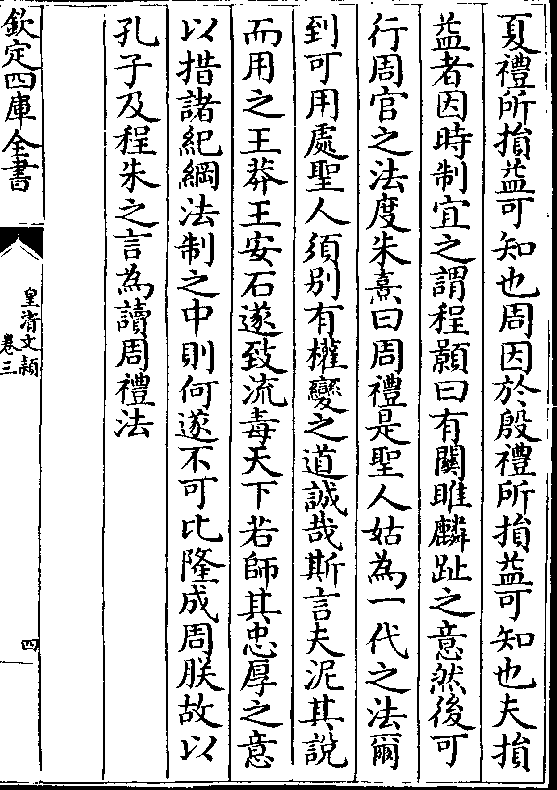 夏禮所損益可知也周因於殷禮所損益可知也夫損
益者因時制宜之謂程顥曰有關雎麟趾之意然後可
行周官之法度朱熹曰周禮是聖人姑為一代之法爾
到可用處聖人須别有權變之道誠哉斯言夫泥其說
而用之王莽王安石遂致流毒天下若師其忠厚之意
以措諸紀綱法制之中則何遂不可比隆成周朕故以
孔子及程朱之言為讀周禮法
欽定四庫全書
皇清文穎
卷三
四